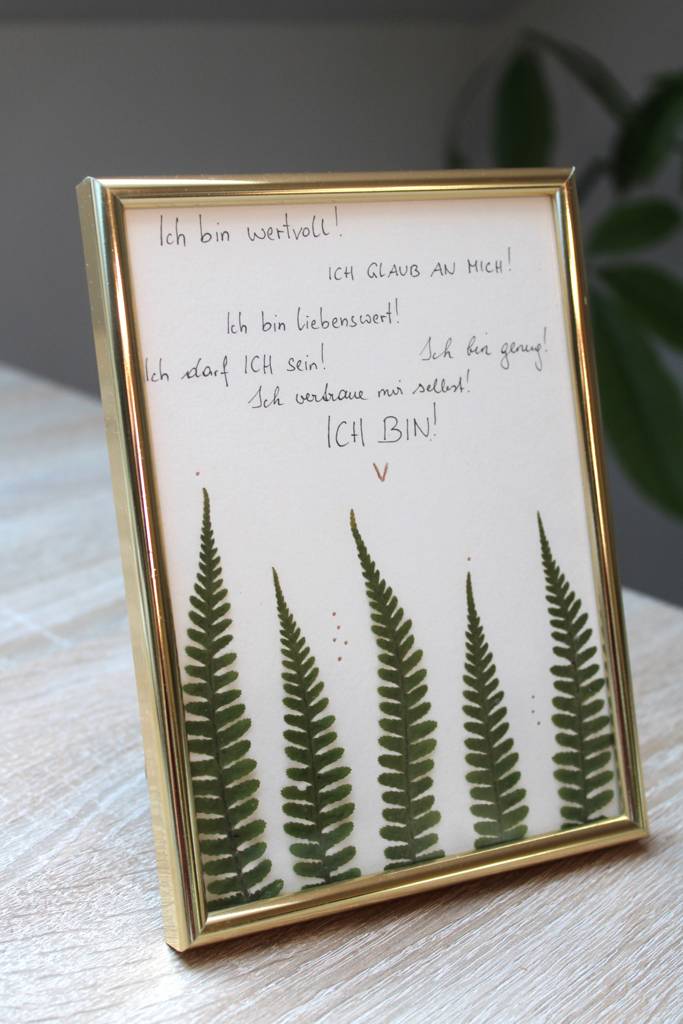 Ich bin wertvoll!
ICH GLAUB AN MICH!
Ich bin liebenswert!
Ich bin genug!
Ich darf ICH sein!
Ich vertraue mir selbst!
ICH BIN!